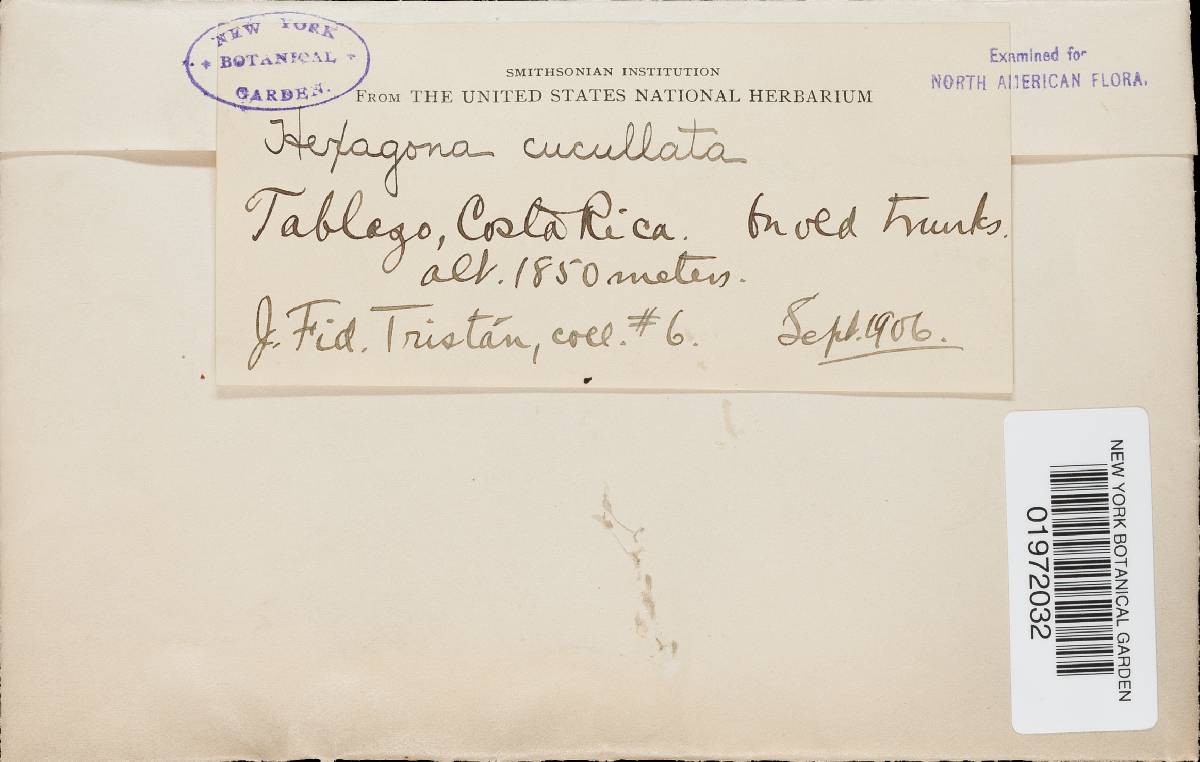 NEW YORK
* BOTANICAL *
GARDEN.
Examined for
NORTH AMERICAN FLORA.
SMITHSONIAN INSTITUTION
FROM THE UNITED STATES NATIONAL HERBARIUM
Hexagona cucullata
Tablago, Costa Rica. On old trunks.
alt. 1850 meters.
J. Fid. Tristán, coll. #6. Sept. 1906.
NEW YORK BOTANICAL GARDEN
01972032